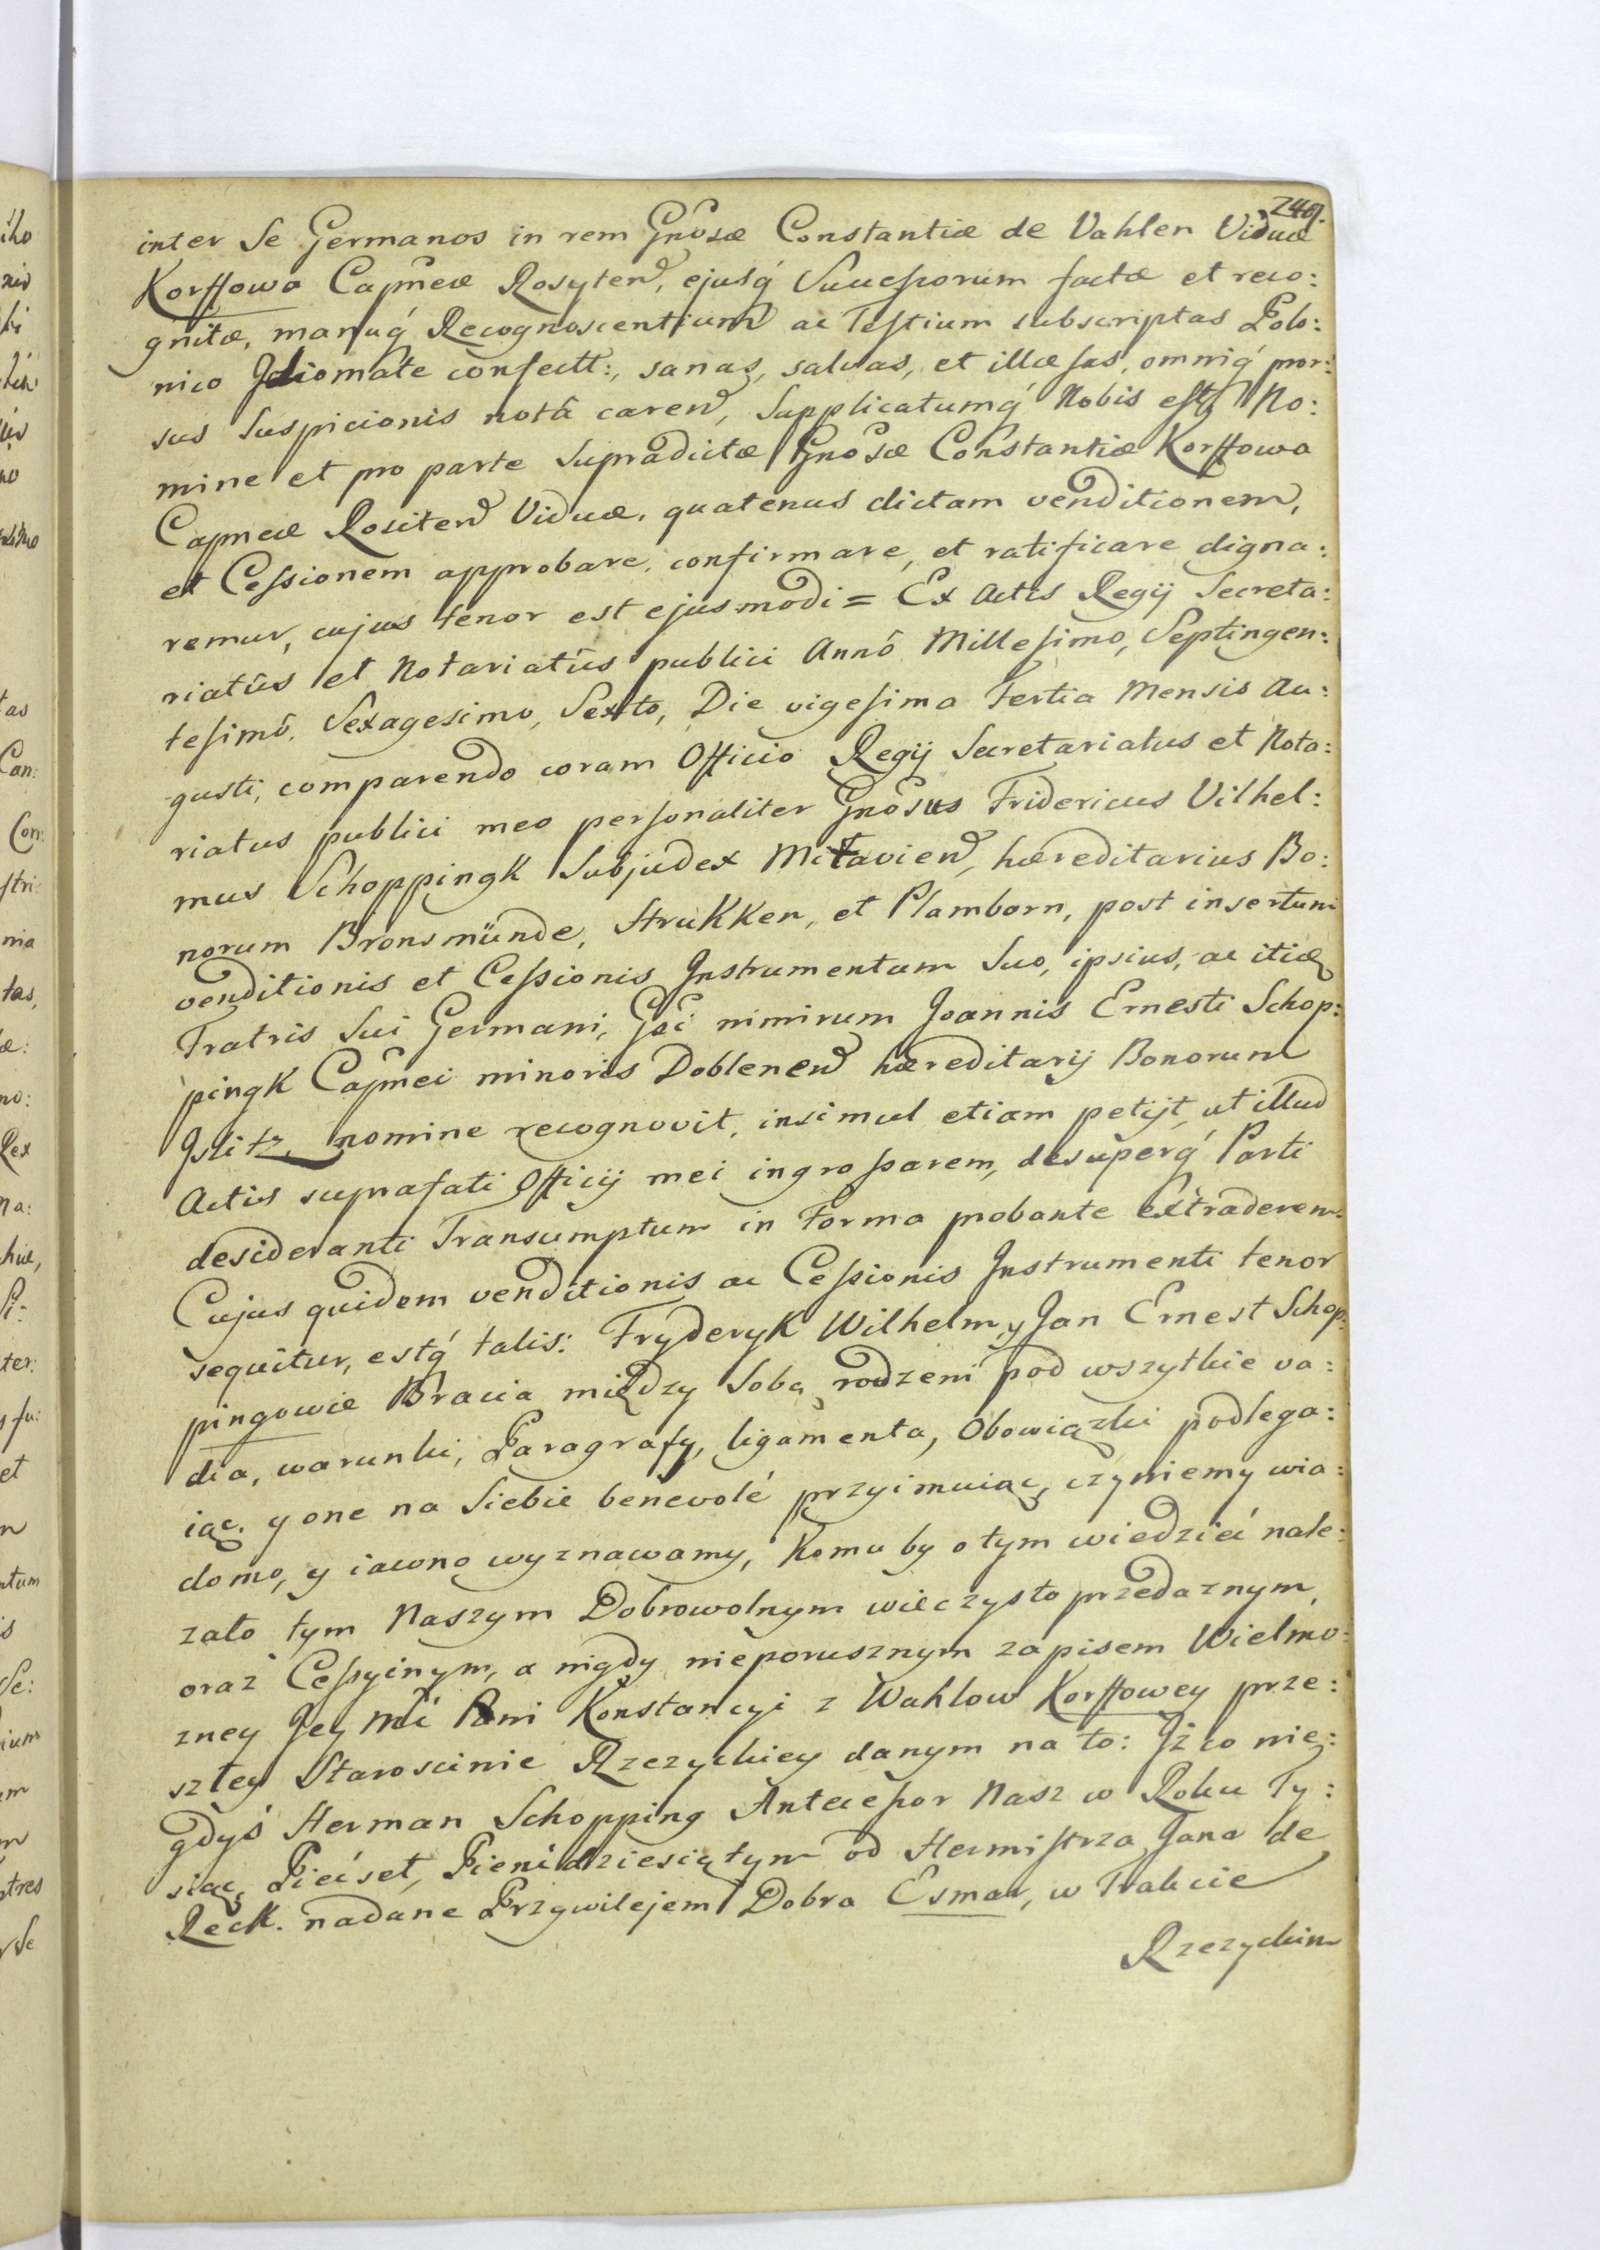 249.
inter Se Germanos in rem Gnosæ Constantiæ de Vahlen Viduæ
Korffowa Capneæ Rosyten, ejusq́ Succeſsorum factæ et reco:
gnitæ, manuq́ Recognoscentium ac Teſtium subscriptas Polo:
nico Idiomate confectt:, sanas, salvas, et illæsas, omniq́ pror:
sus Suspicionis notâ caren, Supplicatumq́ Nobis eſt No:
mine et pro parte Supradictæ Gnosæ Constantiæ Korffowa
Capneæ Rositen Viduæ, quatenus dictam venditionem,
et Ceſsionem approbare, confirmare, et ratificare digna:
remur, cujus tenor est ejusmodi = Ex Actis Regij Secreta:
riatûs et Notariatûs publici Annô Milleſimo, Septingen:
teſimô, Sexagesimo, Sexto, Die vigeſima Tertia Mensis Au:
gusti, comparendo coram Officio Regij Secretariatus et Nota:
riatus publici meo perſonaliter Gnosus Fridericus Vilhel:
mus Schoppingk Subjudex Mitavien, hæreditarius Bo:
norum Bronsmünde, Strukken, et Plamborn, post insertum
venditionis et Ceſsionis Instrumentum Suo, ipsius, ac itię
Fratris Sui Germani, Gsi nimirum Joannis Ernesti Schop:
pingk Capnei minoris Doblenen hæreditarij Bonorum
Islitz, nomine recognovit, insimul etiam petijt, ut illud
Actis suprafati Officij mei ingroſsarem, desuperq́ Parti
desideranti Transumptum in Forma probante extraderem.
Cujus quidem venditionis ac Ceſsionis Instrumenti tenor
sequitur, estq́ talis: Fryderyk Wilhelm, y Jan Ernest Schop:
pingowie Bracia między Sobą rodzeni pod wszytkie va:
dia, warunki, Paragrafy, ligamenta, Obowiązki podlega:
iąc, y one na Siebie benevolé przyimuiąc, czyniemy wia:
domo, y iawno wyznawamy, Komu by o tym wiedzieć nale:
zało tym Naszym Dobrowolnym wieczysto przedaznym,
oraz Ceſsyinym, a nigdy nieporusznym zapisem Wielmo:
zney Jey Mći Pani Konstancyi z Wahlow Korffowey prze:
szłey Staroscinie Rzezyckiey danym na to: Iż co nie:
gdyś Herman Schopping Anteceſsor Nasz w Roku Ty:
siąc, Piećset, Pieńdziesiątym od Hermiſtrza Jana de
Reck. nadane Przywilejem Dobra Esmar, w Trakcie
Rzezyckim